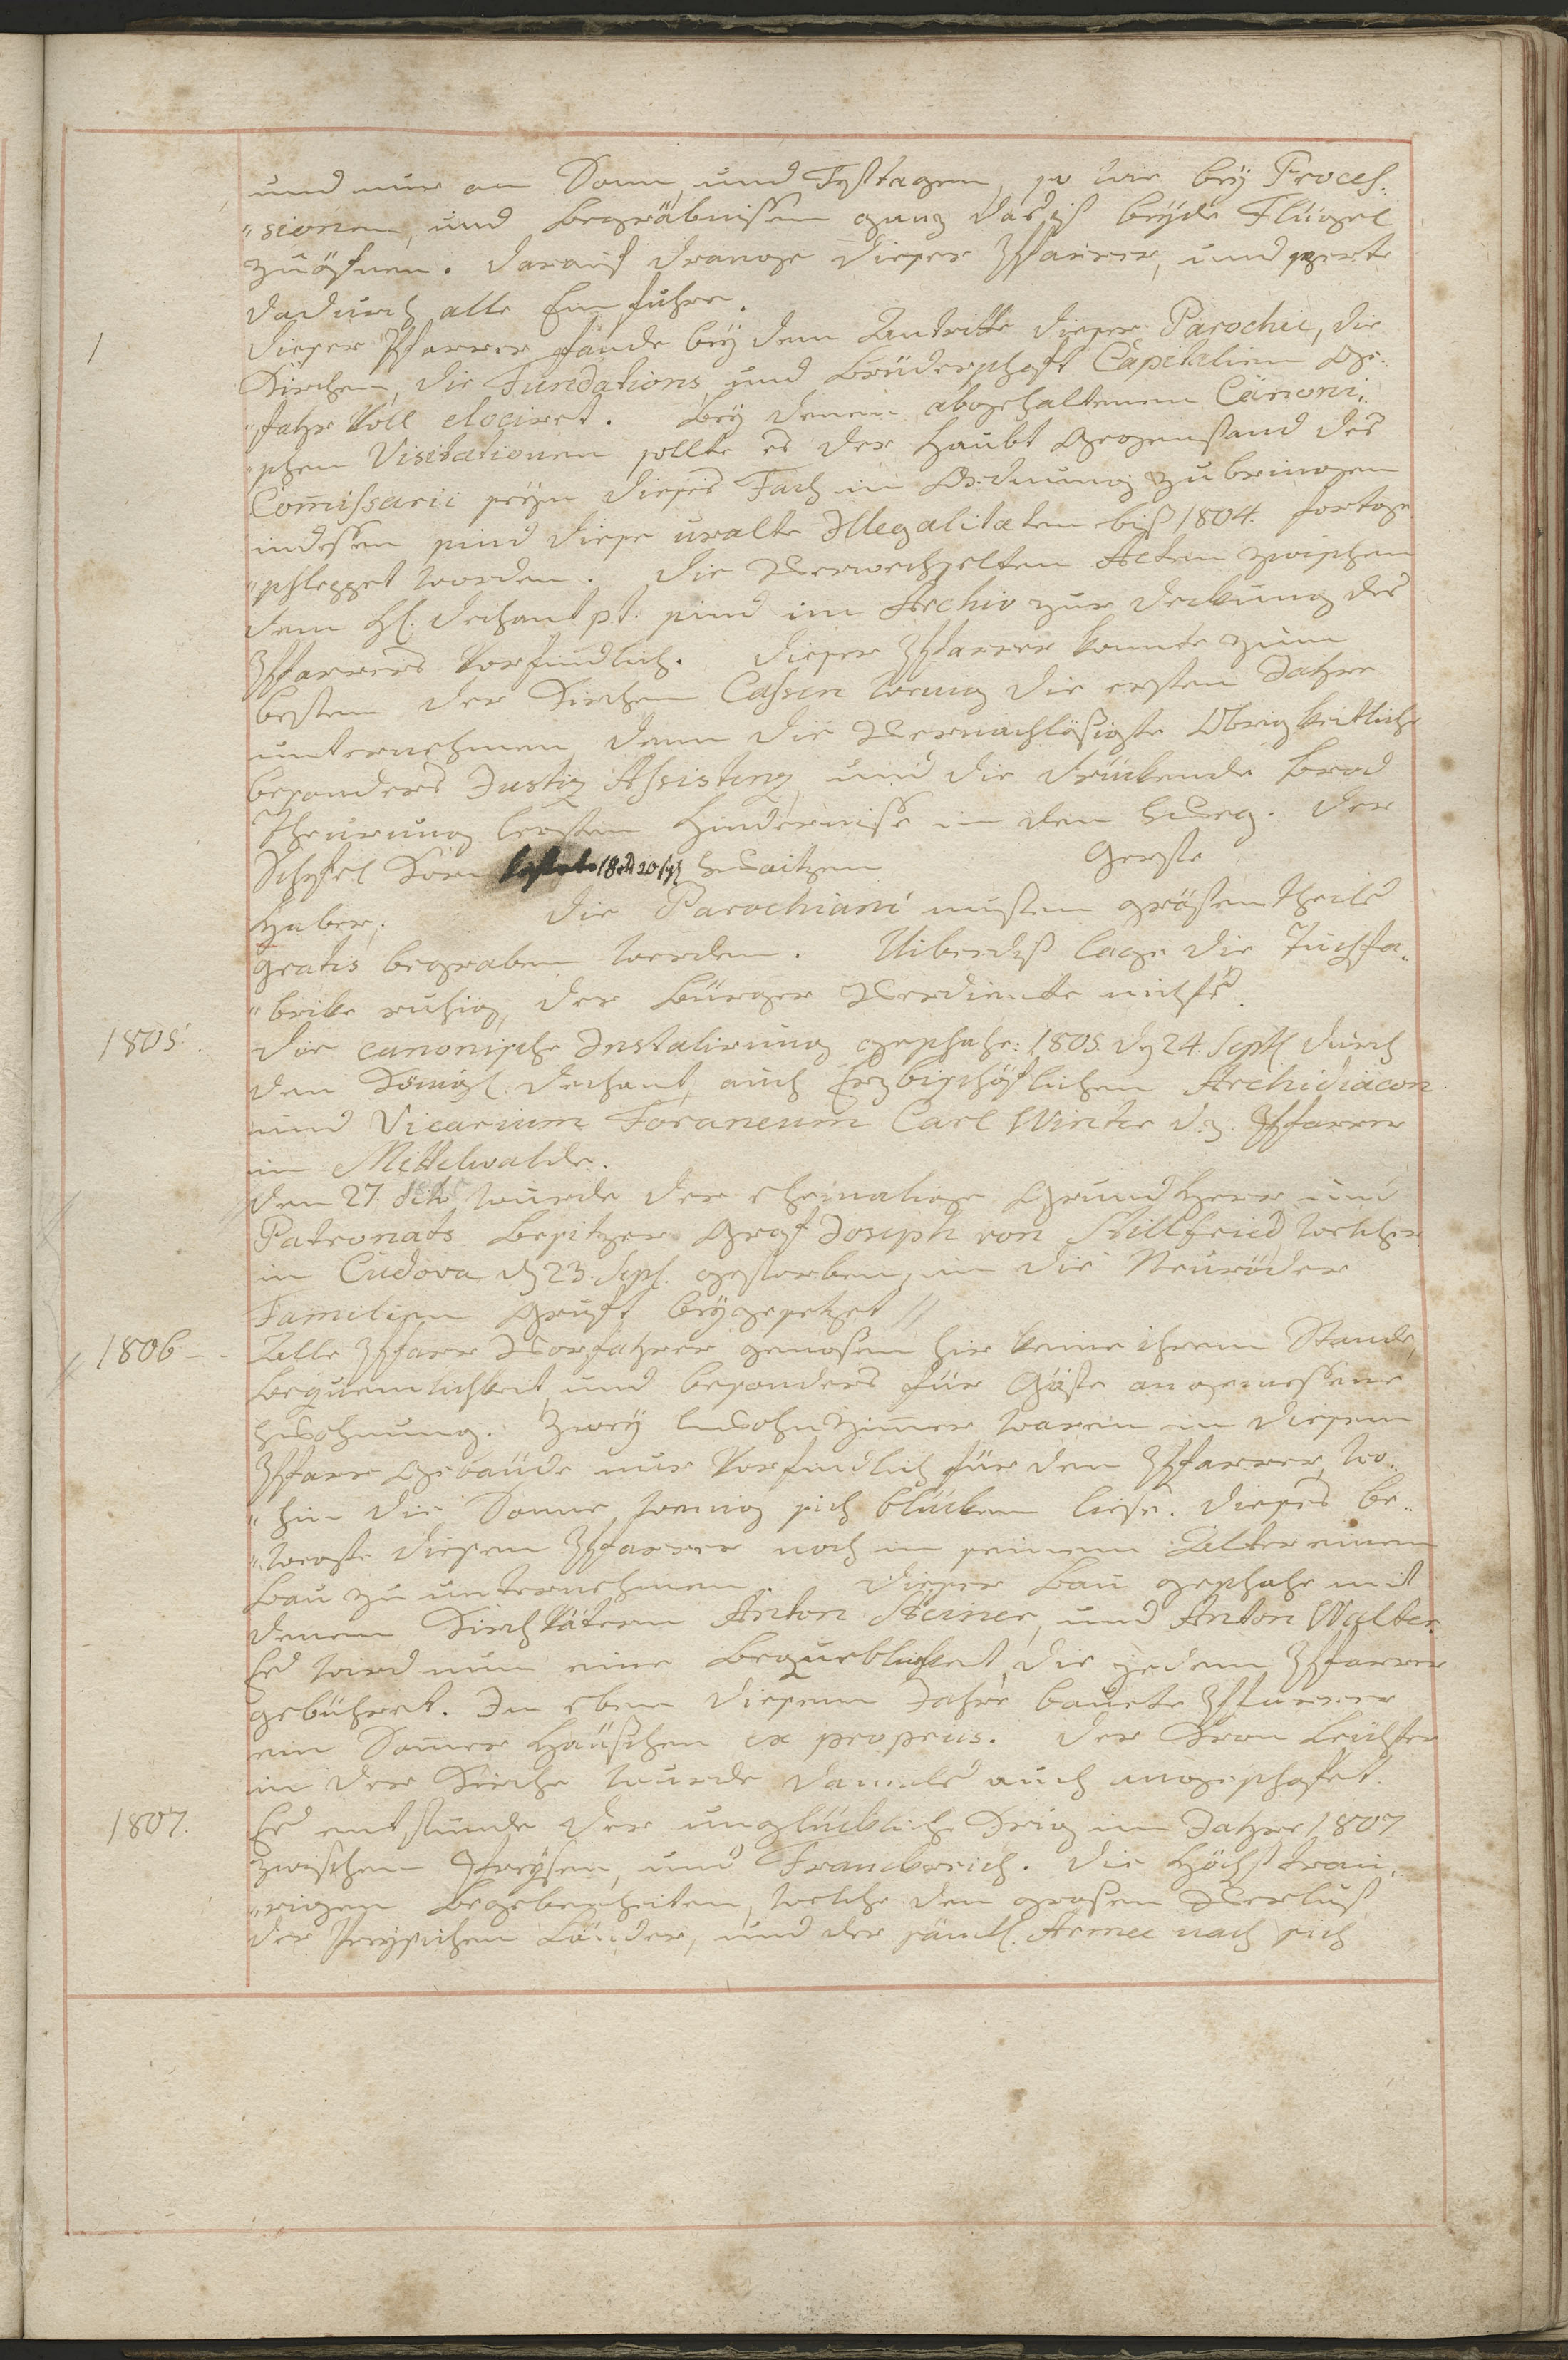 und nur an Sonn und Festtagen, so wie bey Proces-
"sionen, und Begräbnissen ganz das ist beyde Flügel
zuöfnen. Darauf drange dieser Pfarrer, und sperte
dadurch alle Einfuhre.
1
Dieser Pfarrer fande bey dem Antritte dieser Parochie, die
Kirchen, die Fundations, und Bruderschaft Capitalien Ge-
"fahr voll elociret. Bey denen abgehaltenen Canoni-
"schen Visitationen sollte es der Haubt Gegenstand des
Com̄issarii seyn dieses Fach in Ordnung zu bringen
indessen sind diese uralte Illegalitaeten biß 1804. fortge
"schleppet worden. Die Verwechselten Acten zwischen
dem H. Dechant pt. sind im Archiv zur Deckung des
Pfarrers Vorfindlich. Dieser Pfarrer konnte zum
besten der Kirchen Cassen wenig die ersten Jahre
unternehmen, denn die Vernachläßigte Obrigkeitliche
besonders Justiz Assistenz, und die drückende Brod
Theurung legten Hindernisse in den Weg. Der
Schefel Korn kostete 18 20 Waitzen Gerste
Haber, Die Parochiani musten grösten Theils
gratis begraben werden. Uiberdiß lage die Tuchfa-
"brike ruhig, der Bürger Verdiente nichts.
1805.
Die canonische Installirung geschahe: 1805. d. 24. Sept. durch
den Königl. Dechant, auch Erzbischöflichen Archidiacon
und Vicarium Foraneum Carl Winter d.z. Pfarrer
in Mittelwalde.
Den 27. dito wurde der eheinalige Grund Herr und
Patronats Besitzer Graf Joseph von Stillfried welcher
in Cudova d. 23. Sept. gestorben, in die Neuröder
Familien Gruft beygesetzet //
1806 - -
Alle Pfarr Vorfahrer genossen hir keine ihrem Stande,
Bequemlichkeit, und besonders für Gäste angemessene
Wohnung. Zwey Wohn Zim̄er waren in diesem
Pfarr Gebäude nur Vorfindlich für den Pfarrer, wo-
"hin die Sonne wenig sich blicken liese. Dieses be-
"wegte diesen Pfarrer noch in seinem Alter einen
Bau zu unternehmen. Dieser Bau geschahe mit
denen Kirch Vätern Anton Steiner, und Anton Walter.
Es wird nun eine Bequeblichkeit, die jedem Pfarrer
gebühret. In eben diesem Jahre bauete Pfarrer
ein Som̄er Häuschen ex propriis. Der Kron Leüchter
in der Kirche wurde damals auch angeschafet.
1807.
Es entstunde der unglückliche Krig im Jahre 1807
zwischen Preysen, und Franckreich. Die Höchst trau-
"rigen Begebenheiten, welche den grosen Verlust
der Preysichen Länder, und der sämtl. Armee nach sich